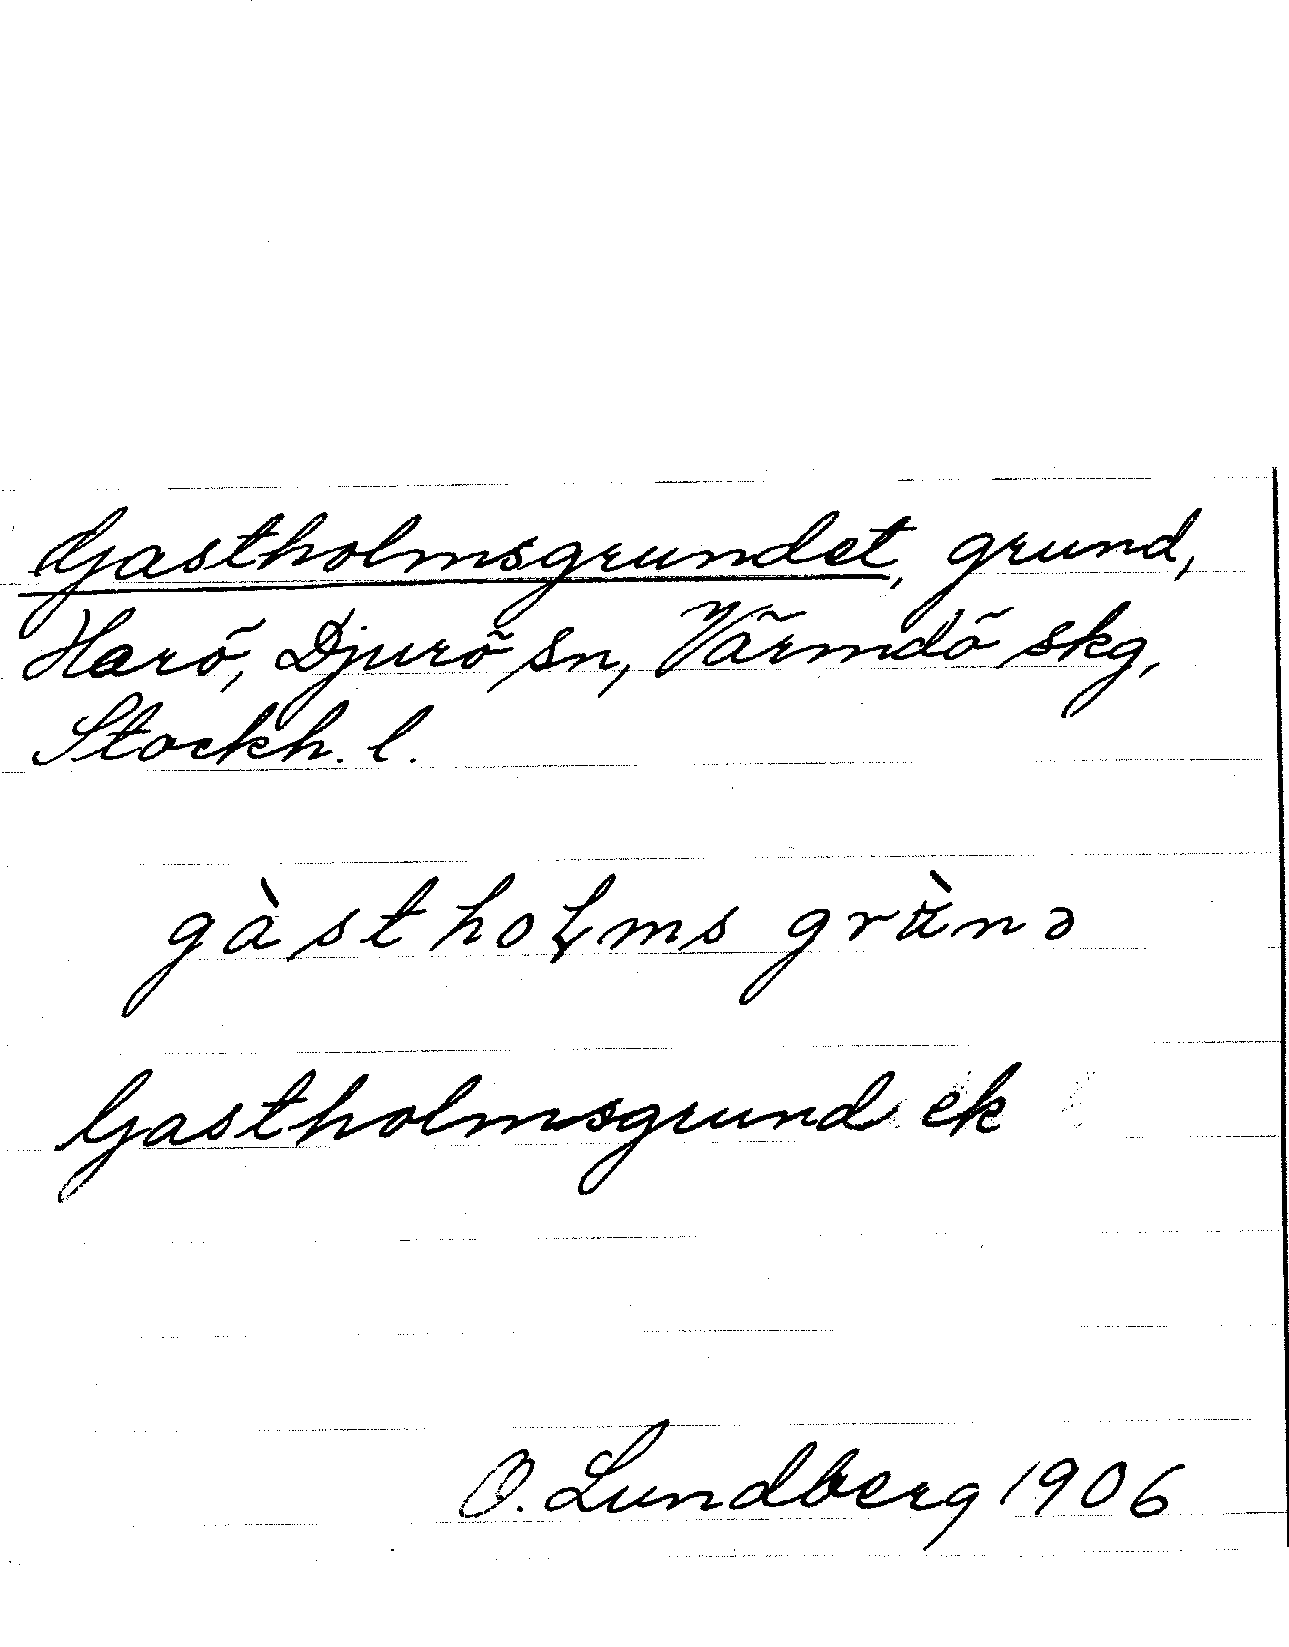 Gastholmsgrundet, grund,
Harö, Djurö sn, Värmdö skg,
Stockh. l.
gàsthoɫms grùnə
Gastholmsgrund ek
O. Lundberg 1906